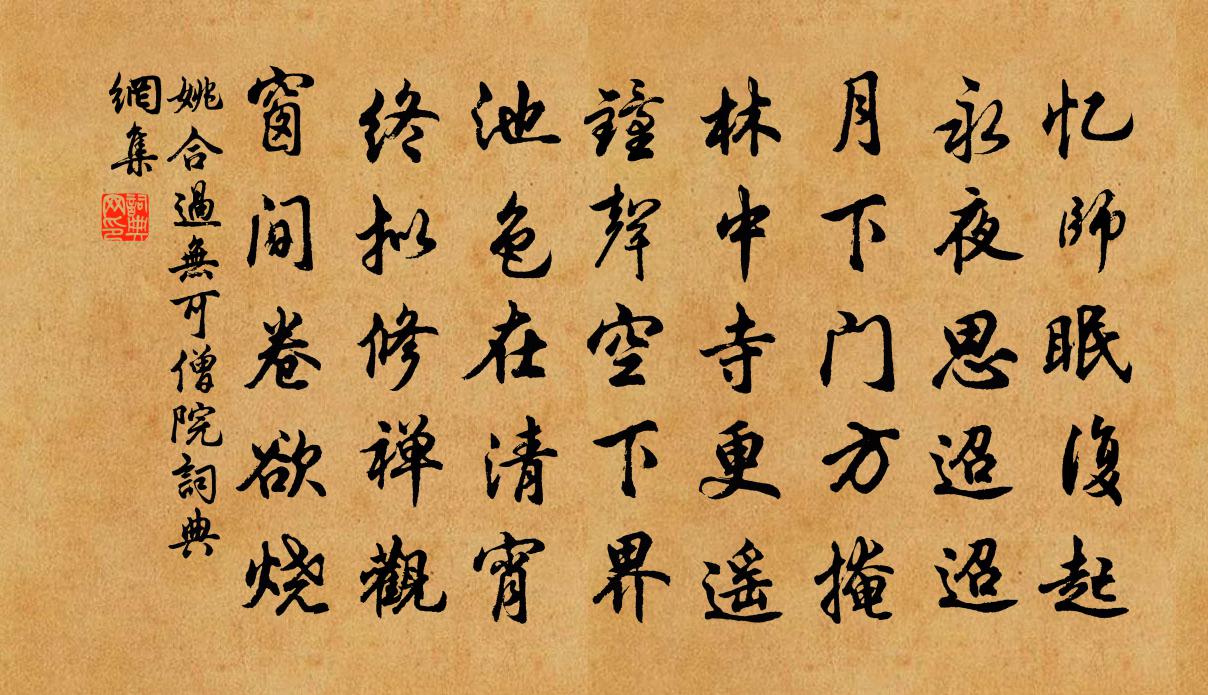 忆师眠復起
永夜思迢迢
月下门方掩
林中寺更遥
鐘聲空下界
池色在清宵
终拟修禅觀
窗间卷欲烧
姚合過無可僧院詞典
網集
詞典
网印